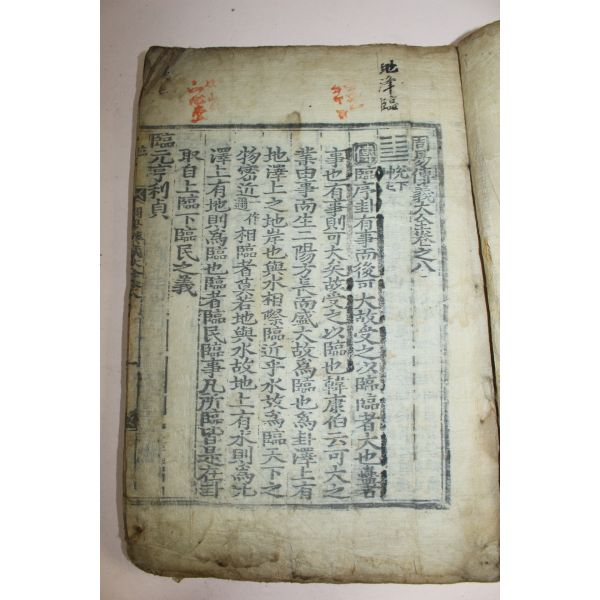 地澤臨
周易傳義大全卷之八
兌下
坤上
傳臨序卦有事而後可大故受之以臨臨者大也蠱者
事也有事則可大矣故受之以臨也韓康伯云可大之
業由事而生二陽方長而盛大故爲臨也爲卦澤上有
地澤上之地岸也與水相際臨近乎水故爲臨天下之
物密近相臨者莫若地與水故地上有水則爲比
澤上有地則爲臨也臨者臨民臨事凡所臨皆是在卦
取自上臨下臨民之義
臨元亨利貞